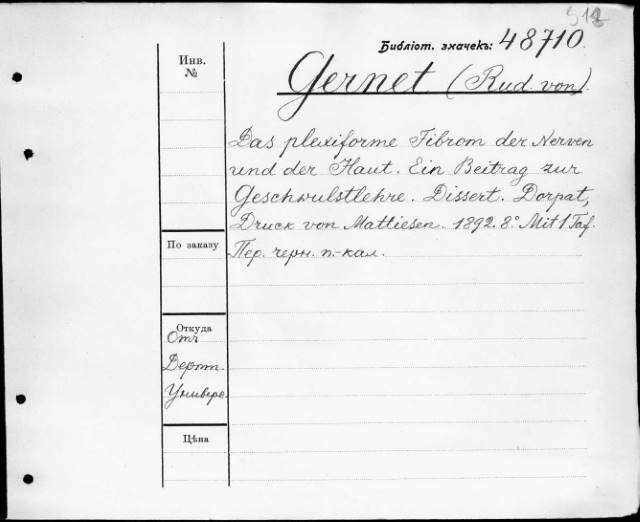 512
Библіот. значекъ: 48710.
Инв.
№
Gernet (Rud. von).
Das plexiforme Fibrom der Nerven
und der Haut. Ein Beitrag zur
Geschwulstlehre. Dissert. Dorpat,
Druck von Mattiesen. 1892. 8.° Mit 1 Taf.
По заказу
Пер. черн. п.-кал.
Откуда
Отъ
Дерпт.
Универс.
Цѣна